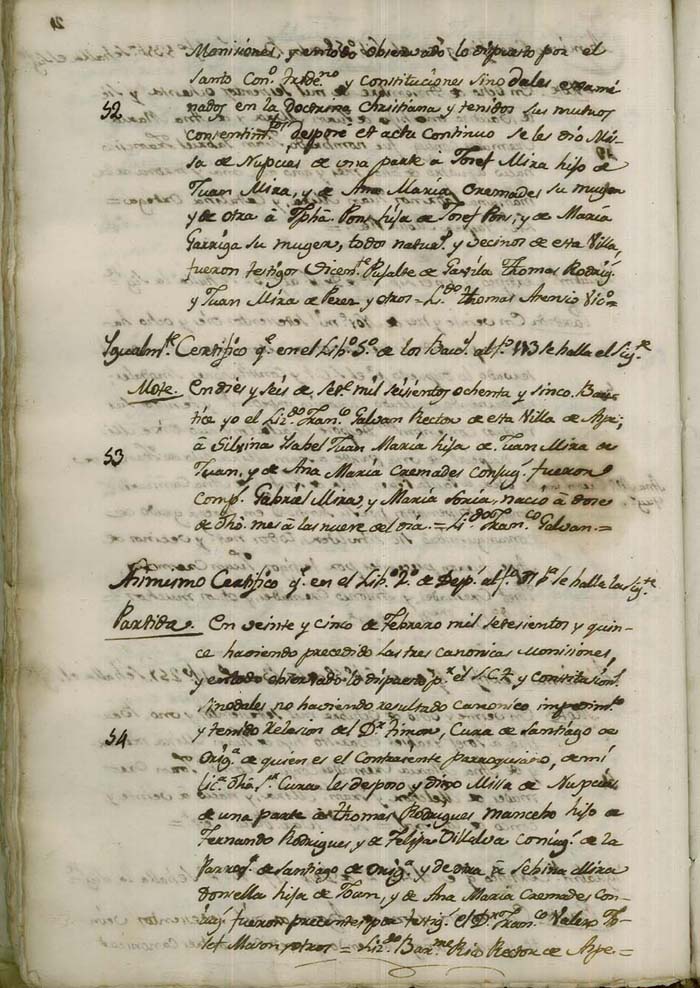 Monisiones, y entodo observado lo dispuesto por el
Santo Con.º tride.no y Constituciones sinodales exami
52
nados en la Doctrina Christiana y tenidos sus mutuos
consentim.tos despose et actu continuo se les dió Mi-
sa de Nupcias de una parte â Josef Mira hijo de
Juan Mira, y de Ana María Cremades su muger
y de otra â Jpha. Pons hija de Josef Pons, y de María
Garriga su muger, todos natur.s y vecinos de esta Villa,
fueron testigos Vicen.te Pujalte de Gavila Thomas Rodrig.
y Juan Mira de Perez y otros = L.do Thomas Arensio Vic.º =
Igualm.te Certifico q.e en el Lib.º 5.º de los Bau.s al f.º 193 se halla el sig.te
Mote. En dies y seis de Set.e mil seisientos ochenta y sinco. Bau-
tice yo el Liz.do Fran.co Galvan Rector de esta Villa de Aspe;
53
â Silvina Ysabel Juan María hija de Juan Mira de
Juan, y de Ana María Cremades conjug.s fueron
comp.s Gabriel Mira, y María Soria, nació â dose
de dho. mes â las nueve del día. = Li.do Fran.co Galvan. =
Asimismo Certifico q.e en el Lib.º 2.º de Desp.s al f.º se halla la sig.te
Partida. En veinte y cinco de Febrero mil setesientos y quin-
ce haviendo precedido las tres canonicas Monisiones,
y entodo observado lo dispuesto p.r el S.C.T. y constitusion.s
sinodales no haviendo resultado canonico impedim.to
54
y tenido relasion del D.r Simon, Cura de Santiago de
Orig.a de quien es el Contraente parroquiano, de mi
lic.a dho. S.r Cura les desposo y dixo Missa de Nupcias
de una parte â Thomas Rodrigues mancebo hijo de
Fernando Rodrigues, y de Felipa Dillalva conjug.s de la
Parroq.l de Santiago de Orig.a y de otra â Sebina Mira
donsella hija de Juan, y de Ana María Cremades Con-
jug.s fueron presentes por testig.s el D.r Fran.co Valero Jo-
sef Mason y otros = Liz.do Bar.me Rico Rector de Aspe =